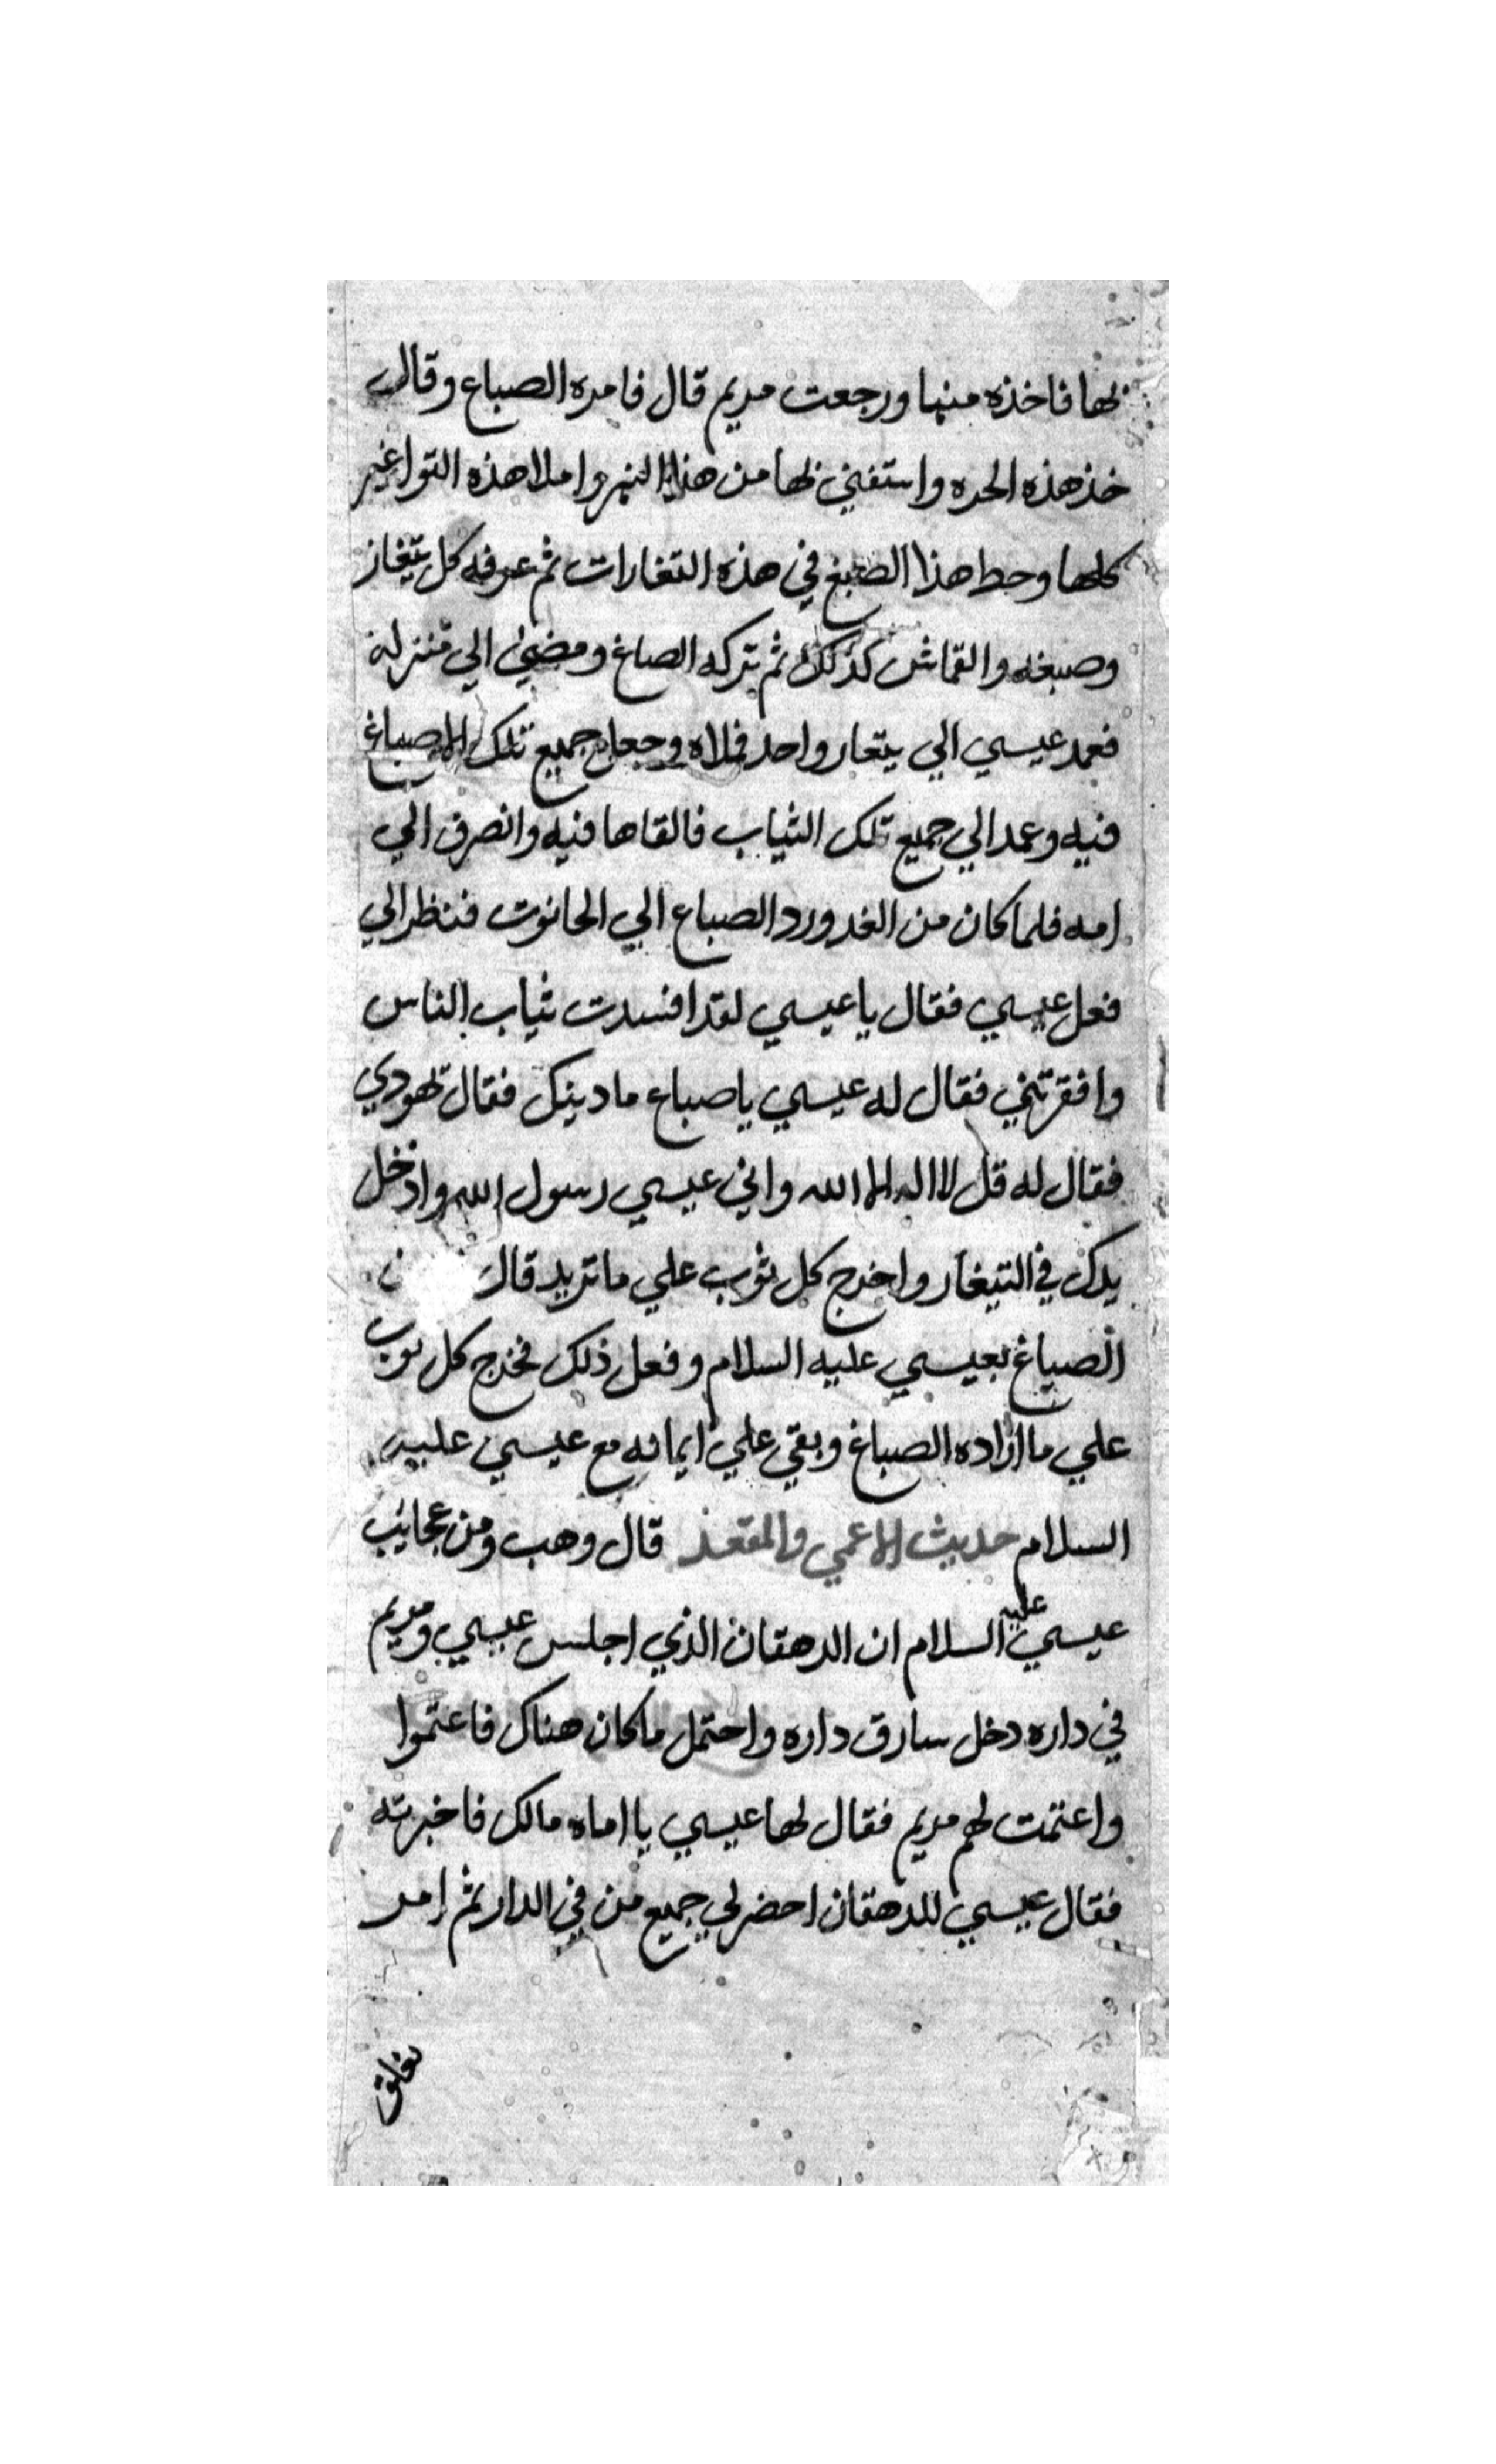 بها فاخذه منها ورجعت مريم قال فامره الصباغ وقال
خذ هذه الجره واستقي بها من هذا النهر واملا هذه التواغير
كلها وحط هذا الصبغ في هذه التغارات ثم عرفه كل تيغار
وصبغه والقماش كذلك ثم تركه الصباغ ومضي الي منزله
فعمد عيسي الي تيغار واحد فملاه وجعل جميع تلك الاصباغ
فيه وعمد الي جميع تلك الثياب فالقاها فيه وانصرف الي
امه فلما كان من الغد ورد الصباغ الي الحانوت فنظر الي
فعل عيسي فقال يا عيسي لقد افسدت ثياب الناس
وافقرتني فقال له عيسي يا صباغ ما دينك فقال يهودي
فقال له قل لا اله الا الله واني عيسي رسول الله وادخل
يدك في التيغار واخرج كل ثوب علي ما تريد قال
الصباغ بعيسي عليه السلام وفعل ذلك فخرج كل ثوب
علي ما اراده الصباغ وبقي علي ايمانه مع عيسي عليه
السلام حديث الاعمي والمقعد قال وهب ومن عجايب
عيسي عليه السلام ان الدهقان الذي اجلس عيسي ومريم
في داره دخل سارق داره واحتمل ما كان هناك فاغتموا
واغتمت لهم مريم فقال لها عيسي يا اماه مالك فاخبرته
فقال عيسي للدهقان احضر لي جميع من في الدار ثم امر